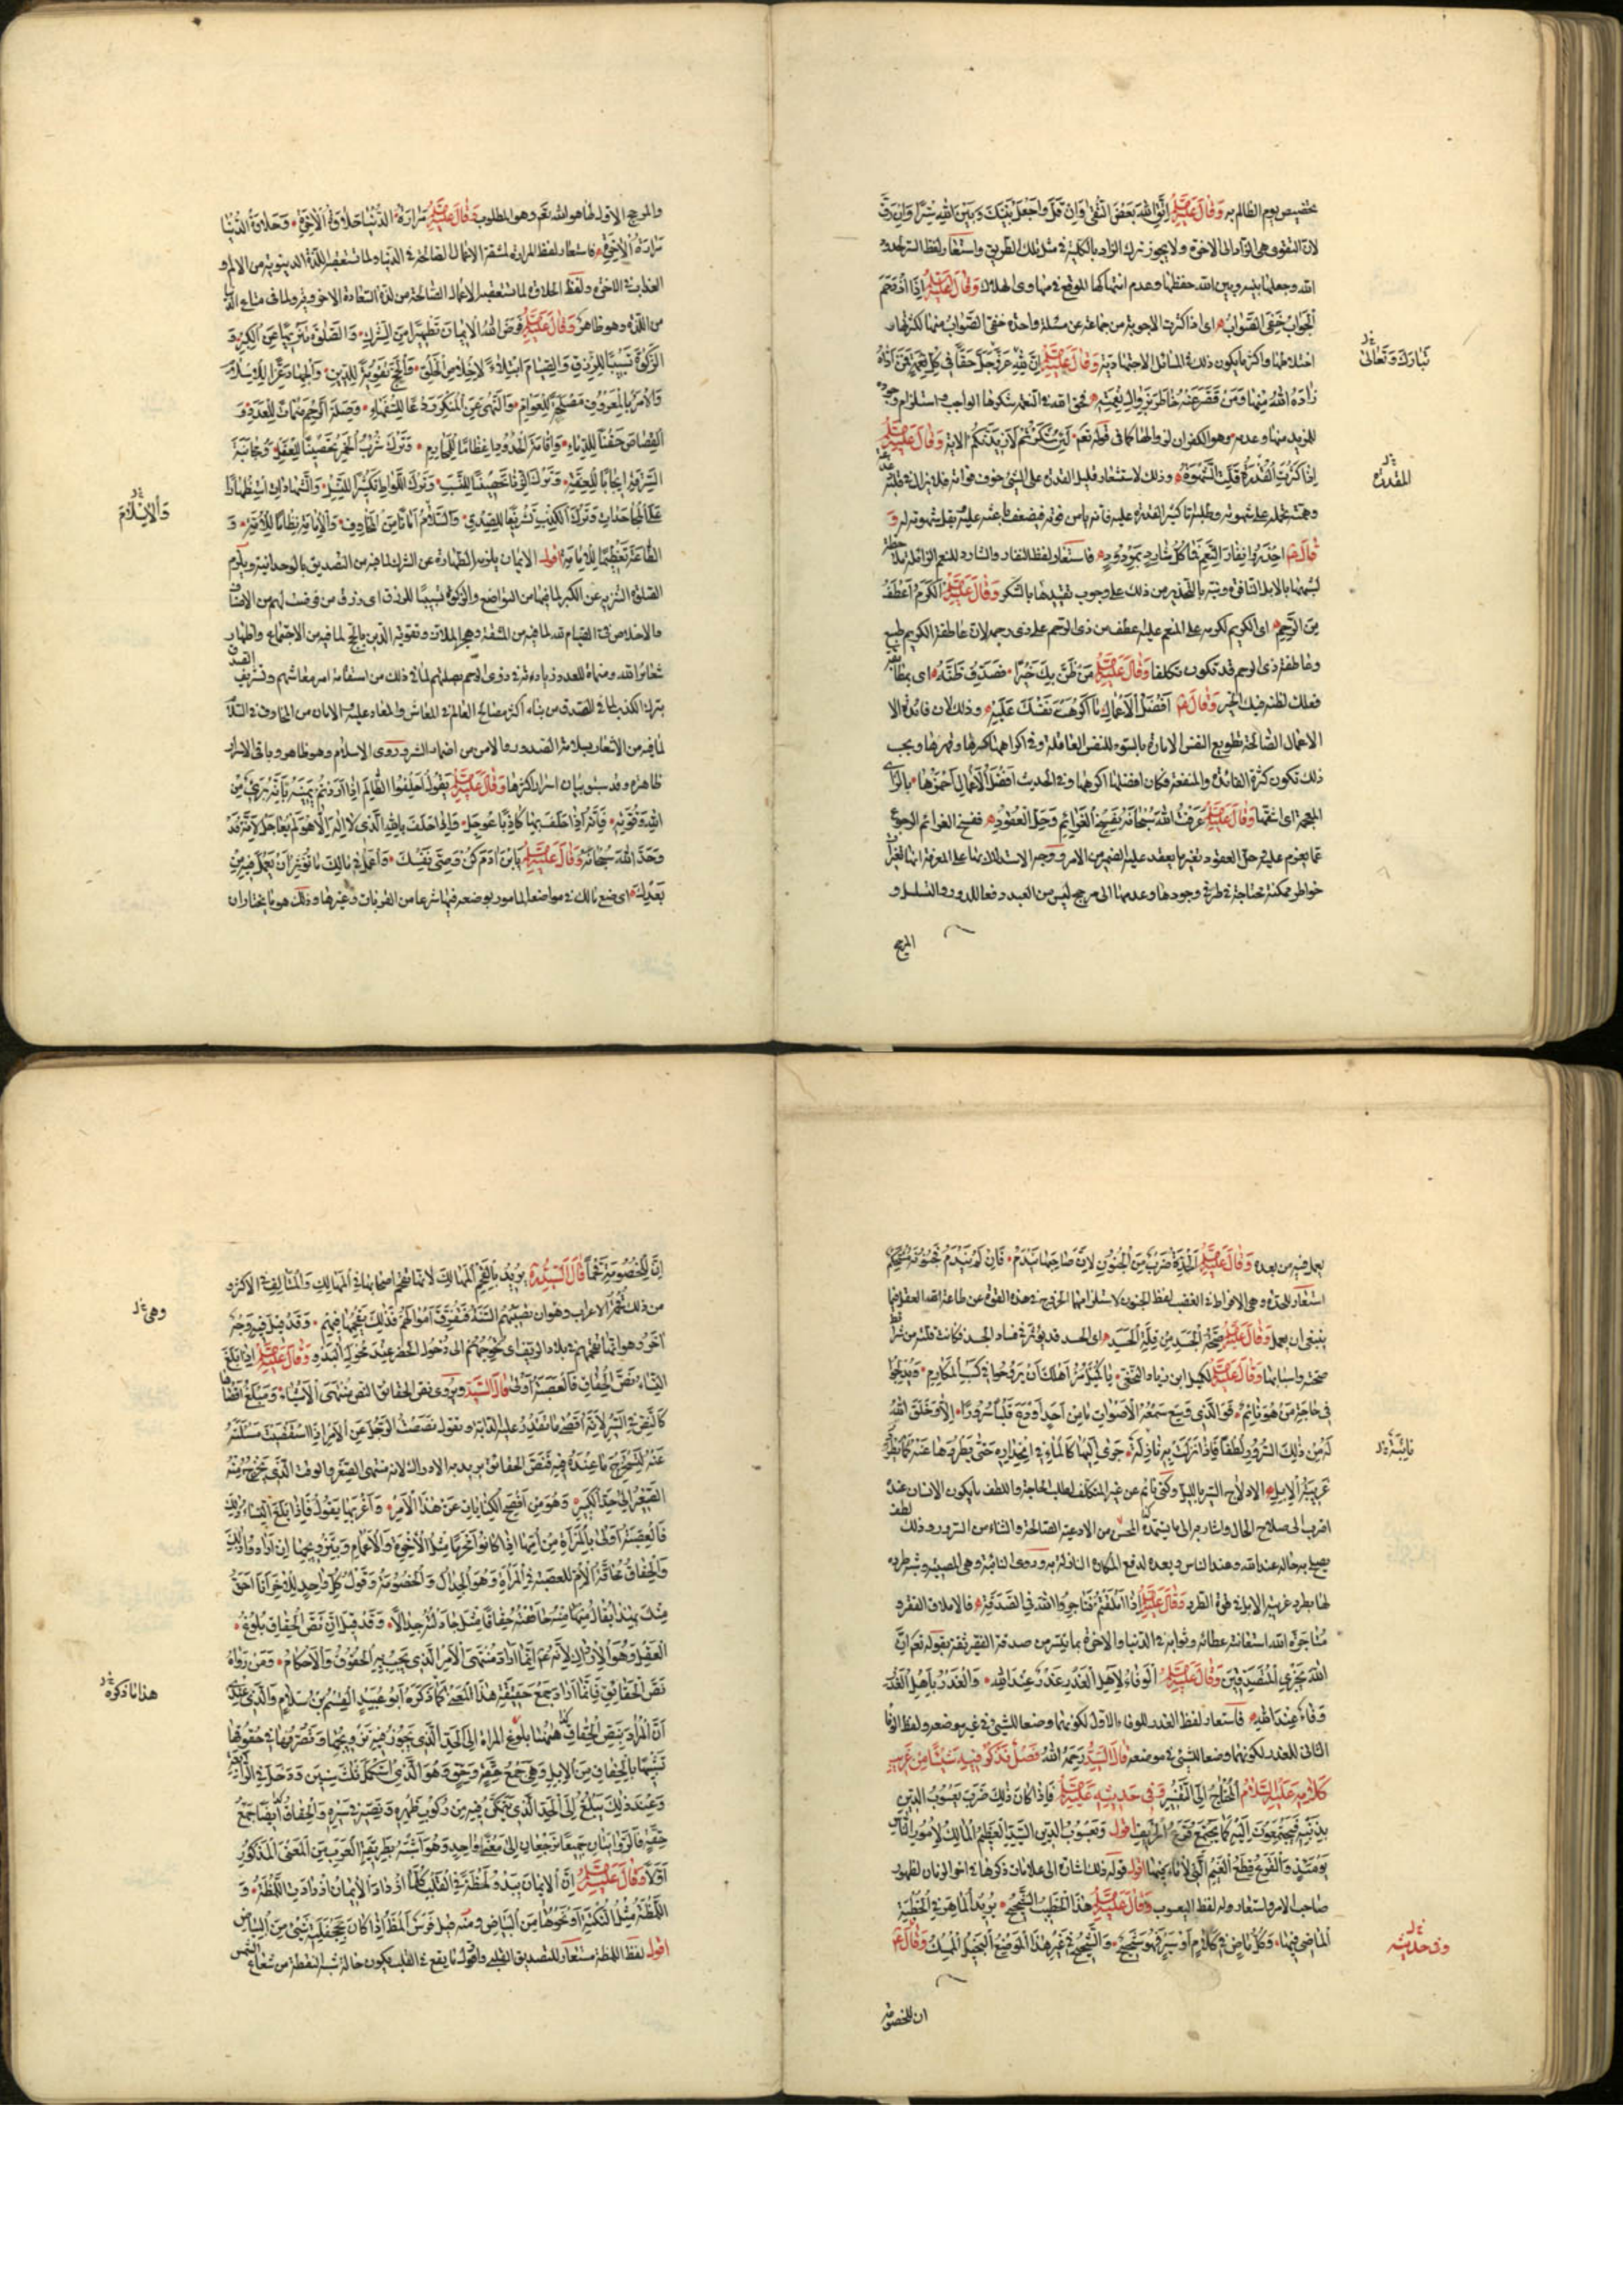 تخصيص يوم الظالم به وَقَالَ عَلَيْهِ السَّلَم اِتَّقِ اللهَ بَعْضَ التُّقَى وَاِنْ قَلَّ وَاجْعَلْ بَيْنَكَ وَبَيْنَ اللهِ سِتْرًا وَاِنْ رَقَّ
لان التقوى هى الزاد الى الاخرة ولا يجوز ترك الزاد بالكلية فى مثل تلك الطريق واستعار لفظ الستر لحدود
الله وجعلها بينه وبين الله حفظها وعدم انتهاكها الموقع فى مهاوى الهلاك وَقَالَ عَلَيْهِ السَّلَم اِذَا ازْدَحَمَ
الْجَوَابُ خَفِىَ الصَّوَابُ اى اذا كثرت الاجوبة من جماعة عن مسئلة واحدة خفى الصواب منها لكثرتها و
اختلاطها واكثر ما يكون ذلك فى المسائل الاجتهادية وَقَالَ عَلَيْهِ السَّلَم اِنَّ لِلّهِ عَزَّ وَجَلَّ حَقًّا فِى كُلِّ نِعْمَةٍ فَمَنْ اَدَّاهُ
تَبَارَكَ وَتَعَالَى
زَادَهُ اللهُ مِنْهَا وَمَنْ قَصَّرَ عَنْهُ خَاطَرَ بِزَوَالِ نِعْمَتِهِ فحق الله فى النعم شكرها الواجب واستلزام وجوده
للمزيد منها وعدمه وهو الكفران لزوالها كما فى قوله تعم لَئِنْ شَكَرْتُمْ لَاَزِيدَنَّكُمْ الاية وَقَالَ عَلَيْهِ السَّلَم
اِذَا كَثُرَتِ الْقُدْرَةُ قَلَّتِ الشَّهْوَةُ وذلك لاستشعار قليل القدرة على الشئ خوف فواته
المقدرة
قَالَ ع احْذَرُوا نِفَارَ النِّعَمِ فَمَا كُلُّ شَارِدٍ بِمَرْدُودٍ فاستعار لفظ النفار والشارد للنعم الزائلة ملاحظة
لشبهها بالابل النافرة ونبه بالتحذير من ذلك على وجوب تقييدها بالشكر وَقَالَ عَلَيْهِ السَّلَم اَلْكَرَمُ اَعْطَفُ
مِنَ الرَّحِمِ اى الكريم لكرمه على المنعم عليه اعطف من ذى الرحم على ذى رحمه لان عاطفة الكريم طبع
وعاطفة ذى الرحم قد تكون تكلفا وَقَالَ عَلَيْهِ السَّلَم مَنْ ظَنَّ بِكَ خَيْرًا فَصَدِّقْ ظَنَّهُ اى بمطابقة
فعلك لظنه فيك الخير وَقَالَ ع اَفْضَلُ الْاَعْمَالِ مَا اَكْرَهْتَ نَفْسَكَ عَلَيْهِ وذلك لان فائدة
الاعمال الصالحة تطويع النفس الامارة بالسوء للنفس العاملة وفى اكراهها كسرها وقهرها وبحسب
ذلك تكون كثرة الفائدة والمنفعة فكان افضلها اكرهها وفى الحديث اَفْضَلُ الْاَعْمَالِ اَحْمَزُهَا بالزاى
المعجمة اى اشقها وَقَالَ عَلَيْهِ السَّلَم عَرَفْتُ اللهَ سُبْحَانَهُ بِفَسْخِ الْعَزَائِمِ وَحَلِّ الْعُقُودِ ففسخ العزائم الرجوع
عما يعزم عليه وحل العقود تغير ما يعقد عليه الضمير من الامر ووجه الاستدلال بها على المعرفة انها تغيرات
خواطر ممكنة محتاجة فى طرفى وجودها وعدمها الى مرجح ليس من العبد دفعا للدور والتسلسل و
المرجح
والمرجح الاول لها هو الله تعم وهو المطلوب وَقَالَ عَلَيْهِ السَّلَم مَرَارَةُ الدُّنْيَا حَلَاوَةُ الْاٰخِرَةِ وَحَلَاوَةُ الدُّنْيَا
مَرَارَةُ الْاٰخِرَةِ فاستعار لفظ المرارة لمشقة الاعمال الصالحة فى الدنيا ولما تستعقبه اللذة الدنيوية من الالم و
العذاب فى الاخرة ولفظ الحلاوة لما تستعقبه الاعمال الصالحة من لذة السعادة الاخروية ولما فى متاع الدنيا
من اللذة وهو ظاهر وَقَالَ عَلَيْهِ السَّلَم فَرَضَ اللهُ الْاِيمَانَ تَطْهِيرًا مِنَ الشِّرْكِ وَالصَّلٰوةَ تَنْزِيهًا عَنِ الْكِبْرِ وَ
الزَّكٰوةَ تَسْبِيبًا لِلرِّزْقِ وَالصِّيَامَ ابْتِلَاءً لِاِخْلَاصِ الْخَلْقِ وَالْحَجَّ تَقْوِيَةً لِلدِّينِ وَالْجِهَادَ عِزًّا لِلْاِسْلَامِ
وَالْاَمْرَ بِالْمَعْرُوفِ مَصْلَحَةً لِلْعَوَامِّ وَالنَّهْىَ عَنِ الْمُنْكَرِ رَدْعًا لِلسُّفَهَاءِ وَصِلَةَ الرَّحِمِ مَنْمَاةً لِلْعَدَدِ وَ
الْقِصَاصَ حَقْنًا لِلدِّمَاءِ وَاِقَامَةَ الْحُدُودِ اِعْظَامًا لِلْمَحَارِمِ وَتَرْكَ شُرْبِ الْخَمْرِ تَحْصِينًا لِلْعَقْلِ وَمُجَانَبَةَ
السَّرِقَةِ اِيجَابًا لِلْعِفَّةِ وَتَرْكَ الزِّنَا تَحْصِينًا لِلنَّسَبِ وَتَرْكَ اللِّوَاطِ تَكْثِيرًا لِلنَّسْلِ وَالشَّهَادَاتِ اسْتِظْهَارًا
وَالْاِسْلَامَ
عَلَى الْمُجَاحَدَاتِ وَتَرْكَ الْكَذِبِ تَشْرِيفًا لِلصِّدْقِ وَالسَّلَامَ اَمَانًا مِنَ الْمَخَاوِفِ وَالْاِمَامَةَ نِظَامًا لِلْاُمَّةِ وَ
الطَّاعَةَ تَعْظِيمًا لِلْاِمَامَةِ اقول الايمان يلزمه الطهارة عن الشرك لما فيه من التصديق بالوحدانية ويلزم
الصلوة التنزيه عن الكبر لما فيها من التواضع
ظاهرة وقد سبق بيان اسرار اكثرها وَقَالَ عَلَيْهِ السَّلَم يَقُولُ اَحْلِفُوا الظَّالِمَ اِذَا اَرَدْتُمْ يَمِينَهُ بِاَنَّهُ بَرِىءٌ مِنْ
اللهِ وَقُوَّتِهِ فَاِنَّهُ اِذَا حَلَفَ بِهَا كَاذِبًا عُوجِلَ وَاِذَا حَلَفَ بِاللهِ الَّذِى لَا اِلٰهَ اِلَّا هُوَ لَمْ يُعَاجَلْ لِاَنَّهُ قَدْ
وَحَّدَ اللهَ سُبْحَانَهُ وَقَالَ عَلَيْهِ السَّلَم يَابْنَ اٰدَمَ كُنْ وَصِىَّ نَفْسِكَ وَاعْمَلْ فِى مَالِكَ مَا تُؤْثِرُ اَنْ يُعْمَلَ فِيهِ مِنْ
بَعْدِكَ اى ضع مالك فى مواضعه المامور بوضعه فيها شرعا من القربات وغيرها وذلك هو ما يختار ان
يعمل فيه من بعده وَقَالَ عَلَيْهِ السَّلَم الْحِدَّةُ ضَرْبٌ مِنَ الْجُنُونِ لِاَنَّ صَاحِبَهَا يَنْدَمُ فَاِنْ لَمْ يَنْدَمْ فَجُنُونُهُ مُسْتَحْكِمٌ
ينبغى ان يعمل وَقَالَ عَلَيْهِ السَّلَم صِحَّةُ الْجَسَدِ مِنْ قِلَّةِ الْحَسَدِ اى الحسد قد يؤثر فى فساد الجسد فكانت قلته من شرائط
صحته واسبابها وَقَالَ عَلَيْهِ السَّلَم لكميل ابن زياد النخعى يَا كُمَيْلُ مُرْ اَهْلَكَ اَنْ يَرُوحُوا فِى كَسْبِ الْمَكَارِمِ وَيُدْلِجُوا
فِى حَاجَةِ مَنْ هُوَ نَائِمٌ فَوَالَّذِى وَسِعَ سَمْعُهُ الْاَصْوَاتَ مَا مِنْ اَحَدٍ اَوْدَعَ قَلْبًا سُرُورًا اِلَّا وَخَلَقَ اللهُ
لَهُ مِنْ ذٰلِكَ السُّرُورِ لُطْفًا فَاِذَا نَزَلَتْ بِهِ نَازِلَةٌ جَرَى اِلَيْهَا كَالْمَاءِ فِى انْحِدَارِهِ حَتَّى يَطْرُدَهَا عَنْهُ كَمَا تُطْرَدُ
نَائِبَةٌ
غَرِيبَةُ الْاِبِلِ الادلاج السير بالليل وكنى بنائم عن غير المتكلف لطلب الحاجة واللطف ما يكون الانسان عنده
اقرب الى صلاح الحال
لها بطرد غريبة الابل فى قوة الطرد وَقَالَ عَلَيْهِ السَّلَم اِذَا اَمْلَقْتُمْ فَتَاجِرُوا اللهَ فِى الصَّدَقَةِ فالاملاق الفقر و
اللهَ يَجْزِى الْمُتَصَدِّقِينَ وَقَالَ عَلَيْهِ السَّلَم الْوَفَاءُ لِاَهْلِ الْغَدْرِ غَدْرٌ عِنْدَ اللهِ وَالْغَدْرُ بِاَهْلِ الْغَدْرِ
وَفَاءٌ عِنْدَ اللهِ فاستعار لفظ الغدر للوفاء الاول لكونهما وضعا للشئ فى غير موضعه ولفظ الوفا
الثانى للغدر لكونهما وضعا للشئ فى موضعه قَالَ السَّيِّدُ رَحِمَهُ اللهُ فَصْلٌ نَذْكُرُ فِيهِ شَيْئًا مِنْ غَرِيبِ
كَلَامِهِ عَلَيْهِ السَّلَامُ الْمُحْتَاجِ اِلَى التَّفْسِيرِ وَفِى حَدِيثِهِ عَلَيْهِ السَّلَم فَاِذَا كَانَ ذٰلِكَ ضَرَبَ يَعْسُوبُ الدِّينِ
بِذَنَبِهِ فَيَجْتَمِعُونَ اِلَيْهِ كَمَا يَجْتَمِعُ قَزَعُ الْخَرِيفِ اقول وَيَعْسُوبُ الدِّينِ السَّيِّدُ الْعَظِيمُ الْمَالِكُ لِاُمُورِ النَّاسِ
يَوْمَئِذٍ وَالْقَزَعُ قِطَعُ الْغَيْمِ الَّتِى لَا مَاءَ فِيهَا اقول قوله ذلك اشارة الى علامات ذكرها فى اخر الزمان لظهور
صاحب الامر واستعار له لفظ اليعسوب وَقَالَ عَلَيْهِ السَّلَم هٰذَا الْخَطِيبُ الشَّحْشَحُ يُرِيدُ الْمَاهِرَ فِى الْخُطْبَةِ
الْمَاضِىَ فِيهَا وَكُلُّ مَاضٍ فِى كَلَامٍ اَوْ سَيْرٍ فَهُوَ شَحْشَحٌ وَالشَّحْشَحُ فِى غَيْرِ هٰذَا الْمَوْضِعِ الْبَخِيلُ الْمُمْسِكُ وَقَالَ ع
وفى حديثه
ان للخصومة
اِنَّ لِلْخُصُومَةِ قُحَمًا قَالَ السَّيِّدُ ره يُرِيدُ بِالْقُحَمِ الْمَهَالِكَ لِاَنَّهَا تُقْحِمُ اَصْحَابَهَا فِى الْمَهَالِكِ وَالْمَتَالِفِ فِى الْاَكْثَرِ و
من ذلك قُحْمَةُ الْاَعْرَابِ وهو ان تصيبهم السنة فتتعرق اموالهم فذلك تقحمها فيهم وَقَدْ قِيلَ فِيهِ وَجْهٌ
وهى
اٰخَرُ وهو انها تقحمهم بلاد الريف اى تحوجهم الى دخول الحضر عند محول البدو وَقَالَ عَلَيْهِ السَّلَم اِذَا بَلَغَ
النِّسَاءُ نَصَّ الْحِقَاقِ فَالْعَصَبَةُ اَوْلَى قَالَ السَّيِّدُ ويروى نص الحقائق النص مُنْتَهَى الْاَشْيَاءِ وَمَبْلَغُ اَقْصَاهَا
كَالنَّصِّ فِى السَّيْرِ لِاَنَّهُ اَقْصَى مَا تَقْدِرُ عليه الدابة وتقول نصصت الرجل عَنِ الْاَمْرِ اِذَا اسْتَقْصَيْتَ مَسْئَلَتَهُ
عَنْهُ لِتَسْتَخْرِجَ مَا عِنْدَهُ فِيهِ فَنَصُّ الحقائق يريد به الادراك لانه منتهى الصغر والوقت الَّذِى يَخْرُجُ مِنْهُ
الصَّغِيرُ اِلَى حَدِّ الْكَبِيرِ وَهُوَ مِنْ اَفْصَحِ الْكِنَايَاتِ عَنْ هٰذَا الْاَمْرِ وَاَغْرَبِهَا يَقُولُ فَاِذَا بَلَغَ النِّسَاءُ ذٰلِكَ
فَالْعَصَبَةُ اَوْلَى بِالْمَرْاَةِ مِنْ اُمِّهَا اِذَا كَانُوا مَحْرَمًا مِثْلَ الْاِخْوَةِ وَالْاَعْمَامِ وَبِتَزْوِيجِهَا اِنْ اَرَادُوا ذٰلِكَ
وَالْحِقَاقُ مُحَاقَّةُ الْاُمِّ لِلْعَصَبَةِ فِى الْمَرْاَةِ وَهُوَ الْجِدَالُ وَالْخُصُومَةُ وَقَوْلُ كُلِّ وَاحِدٍ لِلْاٰخَرِ اَنَا اَحَقُّ
مِنْكَ بِهٰذَا يُقَالُ مِنْهُ حَاقَقْتُهُ حِقَاقًا مِثْلَ جَادَلْتُهُ جِدَالًا وَقَدْ قِيلَ اِنَّ نَصَّ الْحِقَاقِ بُلُوغُ
الْعَقْلِ وَهُوَ الْاِدْرَاكُ لِاَنَّهُ ع اِنَّمَا اَرَادَ مُنْتَهَى الْاَمْرِ الَّذِى يَجِبُ بِهِ الْحُقُوقُ وَالْاَحْكَامُ وَمَنْ رَوَاهُ
نَصَّ الْحَقَائِقِ فَاِنَّمَا اَرَادَ جَمْعَ حَقِيقَةٍ هٰذَا مَعْنَى مَا ذَكَرَهُ اَبُو عُبَيْدٍ الْقَاسِمُ بْنُ سَلَامٍ وَالَّذِى عِنْدِى
هذا ما ذكره
اَنَّ الْمُرَادَ بِنَصِّ الْحِقَاقِ هٰهُنَا بُلُوغُ الْمَرْاَةِ اِلَى الْحَدِّ الَّذِى يَجُوزُ فِيهِ تَزْوِيجُهَا وَتَصَرُّفُهَا فِى حُقُوقِهَا
تَشْبِيهًا بِالْحِقَاقِ مِنَ الْاِبِلِ وَهِىَ جَمْعُ حِقَّةٍ وَحِقٍّ وَهُوَ الَّذِى اسْتَكْمَلَ ثَلَاثَ سِنِينَ وَدَخَلَ فِى الرَّابِعَةِ
وَعِنْدَ ذٰلِكَ يَبْلُغُ اِلَى الْحَدِّ الَّذِى يَتَمَكَّنُ فِيهِ مِنْ رُكُوبِ ظَهْرِهِ وَنَصِّهِ فِى سَيْرِهِ وَالْحِقَاقُ اَيْضًا جَمْعُ
حِقَّةٍ فَالرِّوَايَتَانِ جَمِيعًا تَرْجِعَانِ اِلَى مَعْنًى وَاحِدٍ وَهُوَ اَشْبَهُ بِطَرِيقَةِ الْعَرَبِ مِنَ الْمَعْنَى الْمَذْكُورِ
اَوَّلًا وَقَالَ عَلَيْهِ السَّلَم اِنَّ الْاِيمَانَ يَبْدُو لُمْظَةً فِى الْقَلْبِ كُلَّمَا ازْدَادَ الْاِيمَانُ ازْدَادَتِ اللُّمْظَةُ وَ
اللُّمْظَةُ مِثْلُ النُّكْتَةِ اَوْ نَحْوِهَا مِنَ الْبَيَاضِ ومنه قيل فَرَسٌ اَلْمَظُ اِذَا كَانَ بِجَحْفَلَتِهِ شَىْءٌ مِنَ الْبَيَاضِ
اقول لفظ اللمظة مستعار للتصديق القلبى واول ما يقع فى القلب يكون حاله شبه النقطة من شعاع الشمس